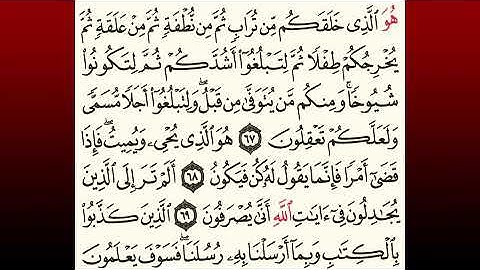 هُوَ ٱلَّذِى خَلَقَكُم مِّن تُرَابٍ ثُمَّ مِن نُّطْفَةٍ ثُمَّ مِنْ عَلَقَةٍ ثُمَّ
يُخْرِجُكُمْ طِفْلًا ثُمَّ لِتَبْلُغُوٓا۟ أَشُدَّكُمْ ثُمَّ لِتَكُونُوا۟
شُيُوخًا ۚ وَمِنكُم مَّن يُتَوَفَّىٰ مِن قَبْلُ ۖ وَلِتَبْلُغُوٓا۟ أَجَلًا مُّسَمًّى
وَلَعَلَّكُمْ تَعْقِلُونَ ٦٧ هُوَ ٱلَّذِى يُحْىِۦ وَيُمِيتُ ۖ فَإِذَا
قَضَىٰٓ أَمْرًا فَإِنَّمَا يَقُولُ لَهُۥ كُن فَيَكُونُ ٦٨ أَلَمْ تَرَ إِلَى ٱلَّذِينَ
يُجَٰدِلُونَ فِىٓ ءَايَٰتِ ٱللَّهِ أَنَّىٰ يُصْرَفُونَ ٦٩ ٱلَّذِينَ كَذَّبُوا۟
بِٱلْكِتَٰبِ وَبِمَآ أَرْسَلْنَا بِهِۦ رُسُلَنَا ۖ فَسَوْفَ يَعْلَمُونَ